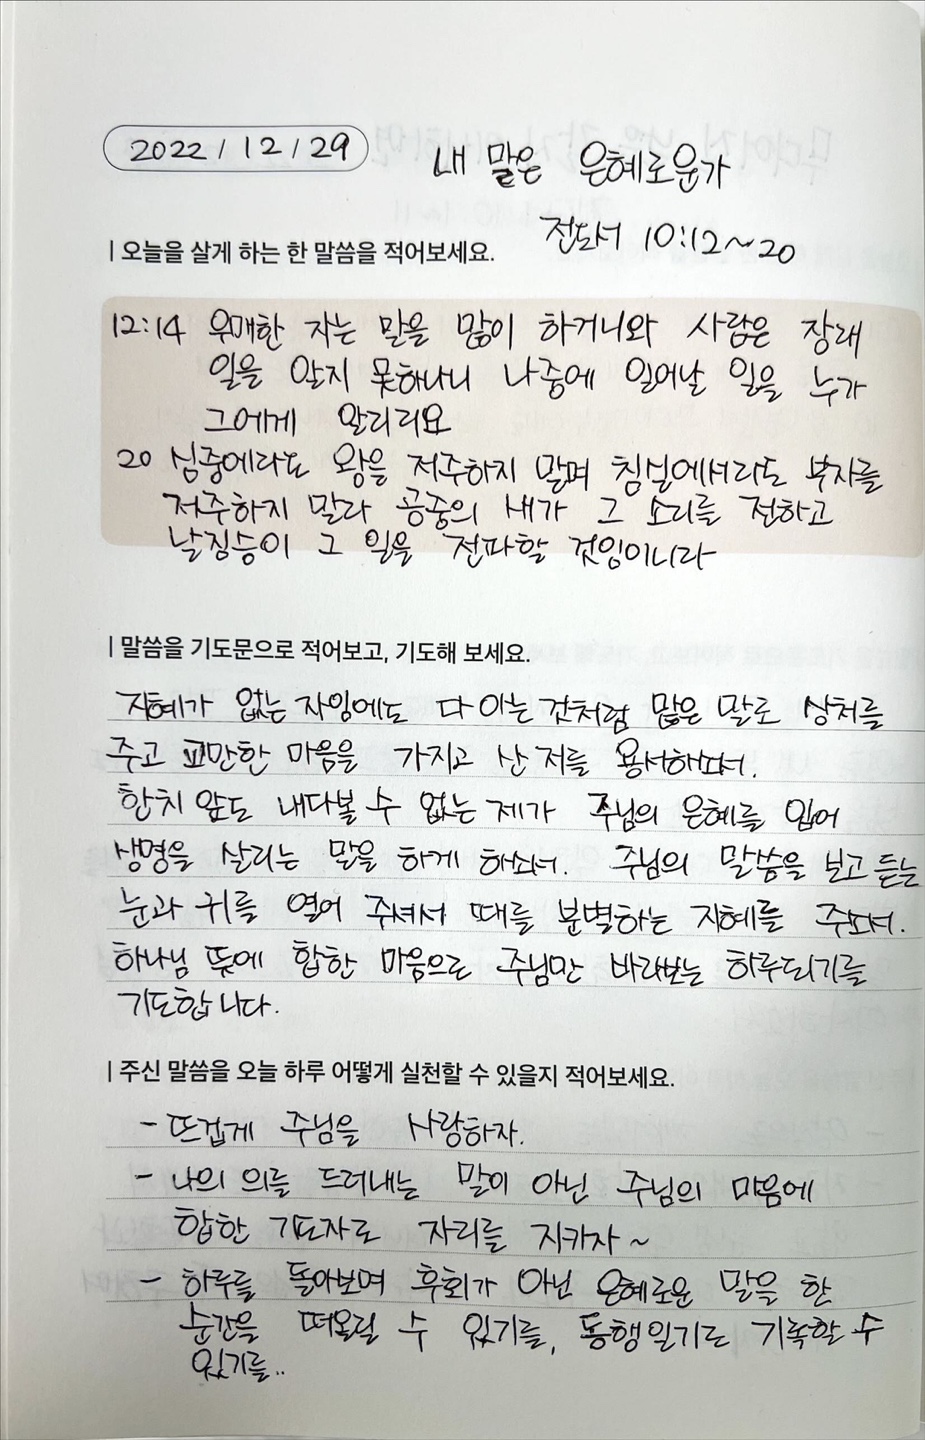 2022/12/29
내 말은 은혜로운가
전도서 10:12~20
| 오늘을 살게 하는 한 말씀을 적어보세요.
12:14 우매한 자는 말을 많이 하거니와 사람은 장래
일을 알지 못하나니 나중에 일어날 일을 누가
그에게 알리리요
20 심중에라도 왕을 저주하지 말며 침실에서라도 부자를
저주하지 말라 공중의 새가 그 소리를 전하고
날짐승이 그 일을 전파할 것임이니라
| 말씀을 기도문으로 적어보고, 기도해 보세요.
지혜가 없는 자임에도 다 아는 것처럼 많은 말로 상처를
주고 교만한 마음을 가지고 산 저를 용서해쇼셔.
한치 앞도 내다볼 수 없는 제가 주님의 은혜를 입어
생명을 살리는 말을 하게 하쇼셔. 주님의 말씀을 보고 듣는
눈과 귀를 열어 주셔서 때를 분별하는 지혜를 주쇼셔.
하나님 뜻에 합한 마음으로 주님만 바라보는 하루되기를
기도합니다.
| 주신 말씀을 오늘 하루 어떻게 실천할 수 있을지 적어보세요.
- 뜨겁게 주님을 사랑하자.
- 나의 의를 드러내는 말이 아닌 주님의 마음에
합한 기도자로 자리를 지키자~
- 하루를 돌아보며 후회가 아닌 은혜로운 말을 한
순간을 떠올릴 수 있기를, 동행일기로 기록할 수
있기를..